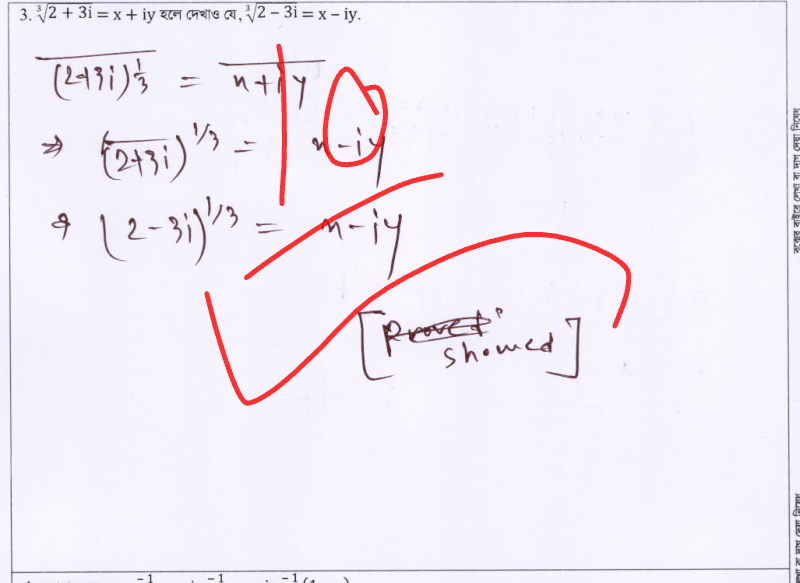 3. ∛2 + 3i = x + iy হলে দেখাও যে, ∛2 − 3i = x − iy.
(2+3i)^1/3 = x+iy
⇒ (2+3i)^1/3 = x-iy
⇒ (2-3i)^1/3 = x-iy
[Proved
showed]
বক্সের বাইরে লেখা বা দাগ দেয়া নিষেধ